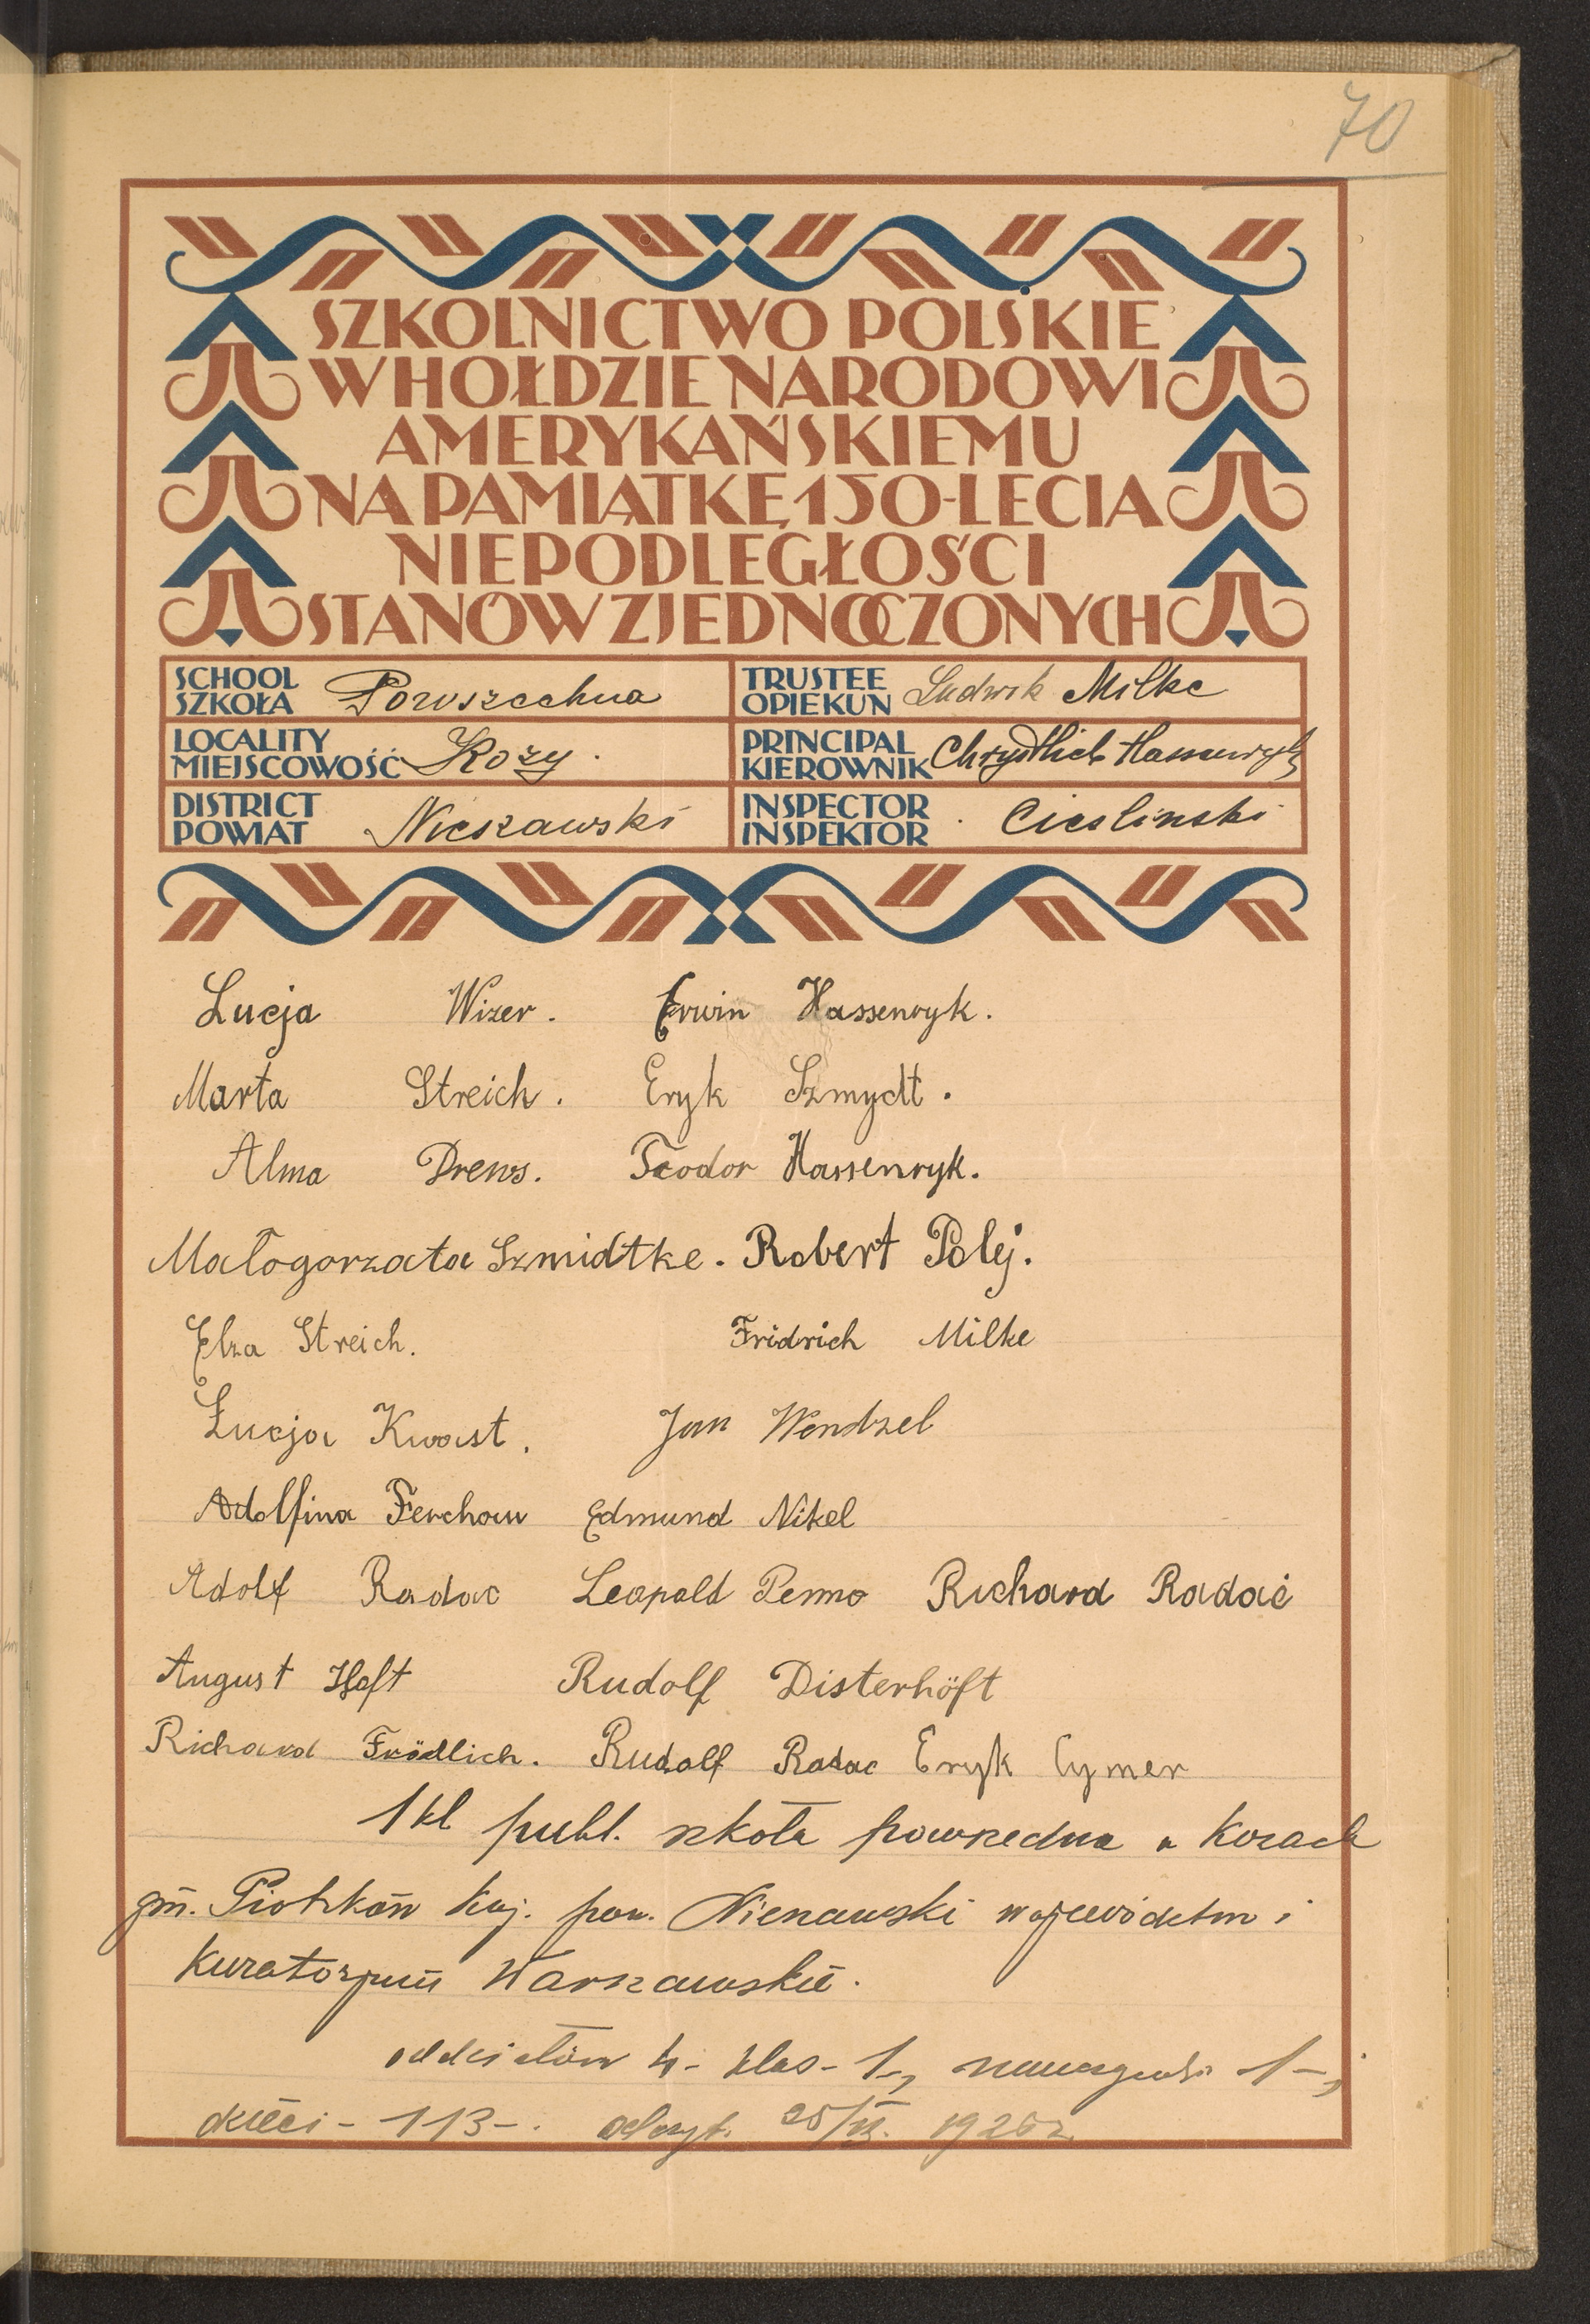 70
SZKOLNICTWO POLSKIE
W HOŁDZIE NARODOWI
AMERYKAŃSKIEMU
NA PAMIĄTKĘ 150-LECIA
NIEPODLEGŁOŚCI
STANÓW ZJEDNOCZONYCH
SCHOOL SZKOŁA Powszechna
TRUSTEE OPIEKUN Ludwik Milke
LOCALITY MIEJSCOWOŚĆ Kozy.
PRINCIPAL KIEROWNIK Hassenryk
DISTRICT POWIAT Nieszawski
INSPECTOR INSPEKTOR Cieslinski
Lucja Wizer. Erwin Hassenryk.
Marta Streich. Eryk Szmydt.
Alma Drews. Teodor Hassenryk.
Małogorzata Szmidtke. Robert Polej.
Elza Streich. Fridrich Milke
Łucja Kwast. Jan Wendzel
Adolfina Ferchow Edmund Nikel
Adolf Radac Leopald Penno Richard Radać
August Heft Rudolf Disterhöft
Richard Frödlich. Rudolf Radac Eryk Cymer
1 kl publ. szkoła powszedna w Kozach
gm. Piotrków Kuj. pow. Nieszawski województwo i
Kuratorjum Warszawskie.
oddziałów 4 - klas - 1-, 1-,
dzieci - 113 -. 1926 r